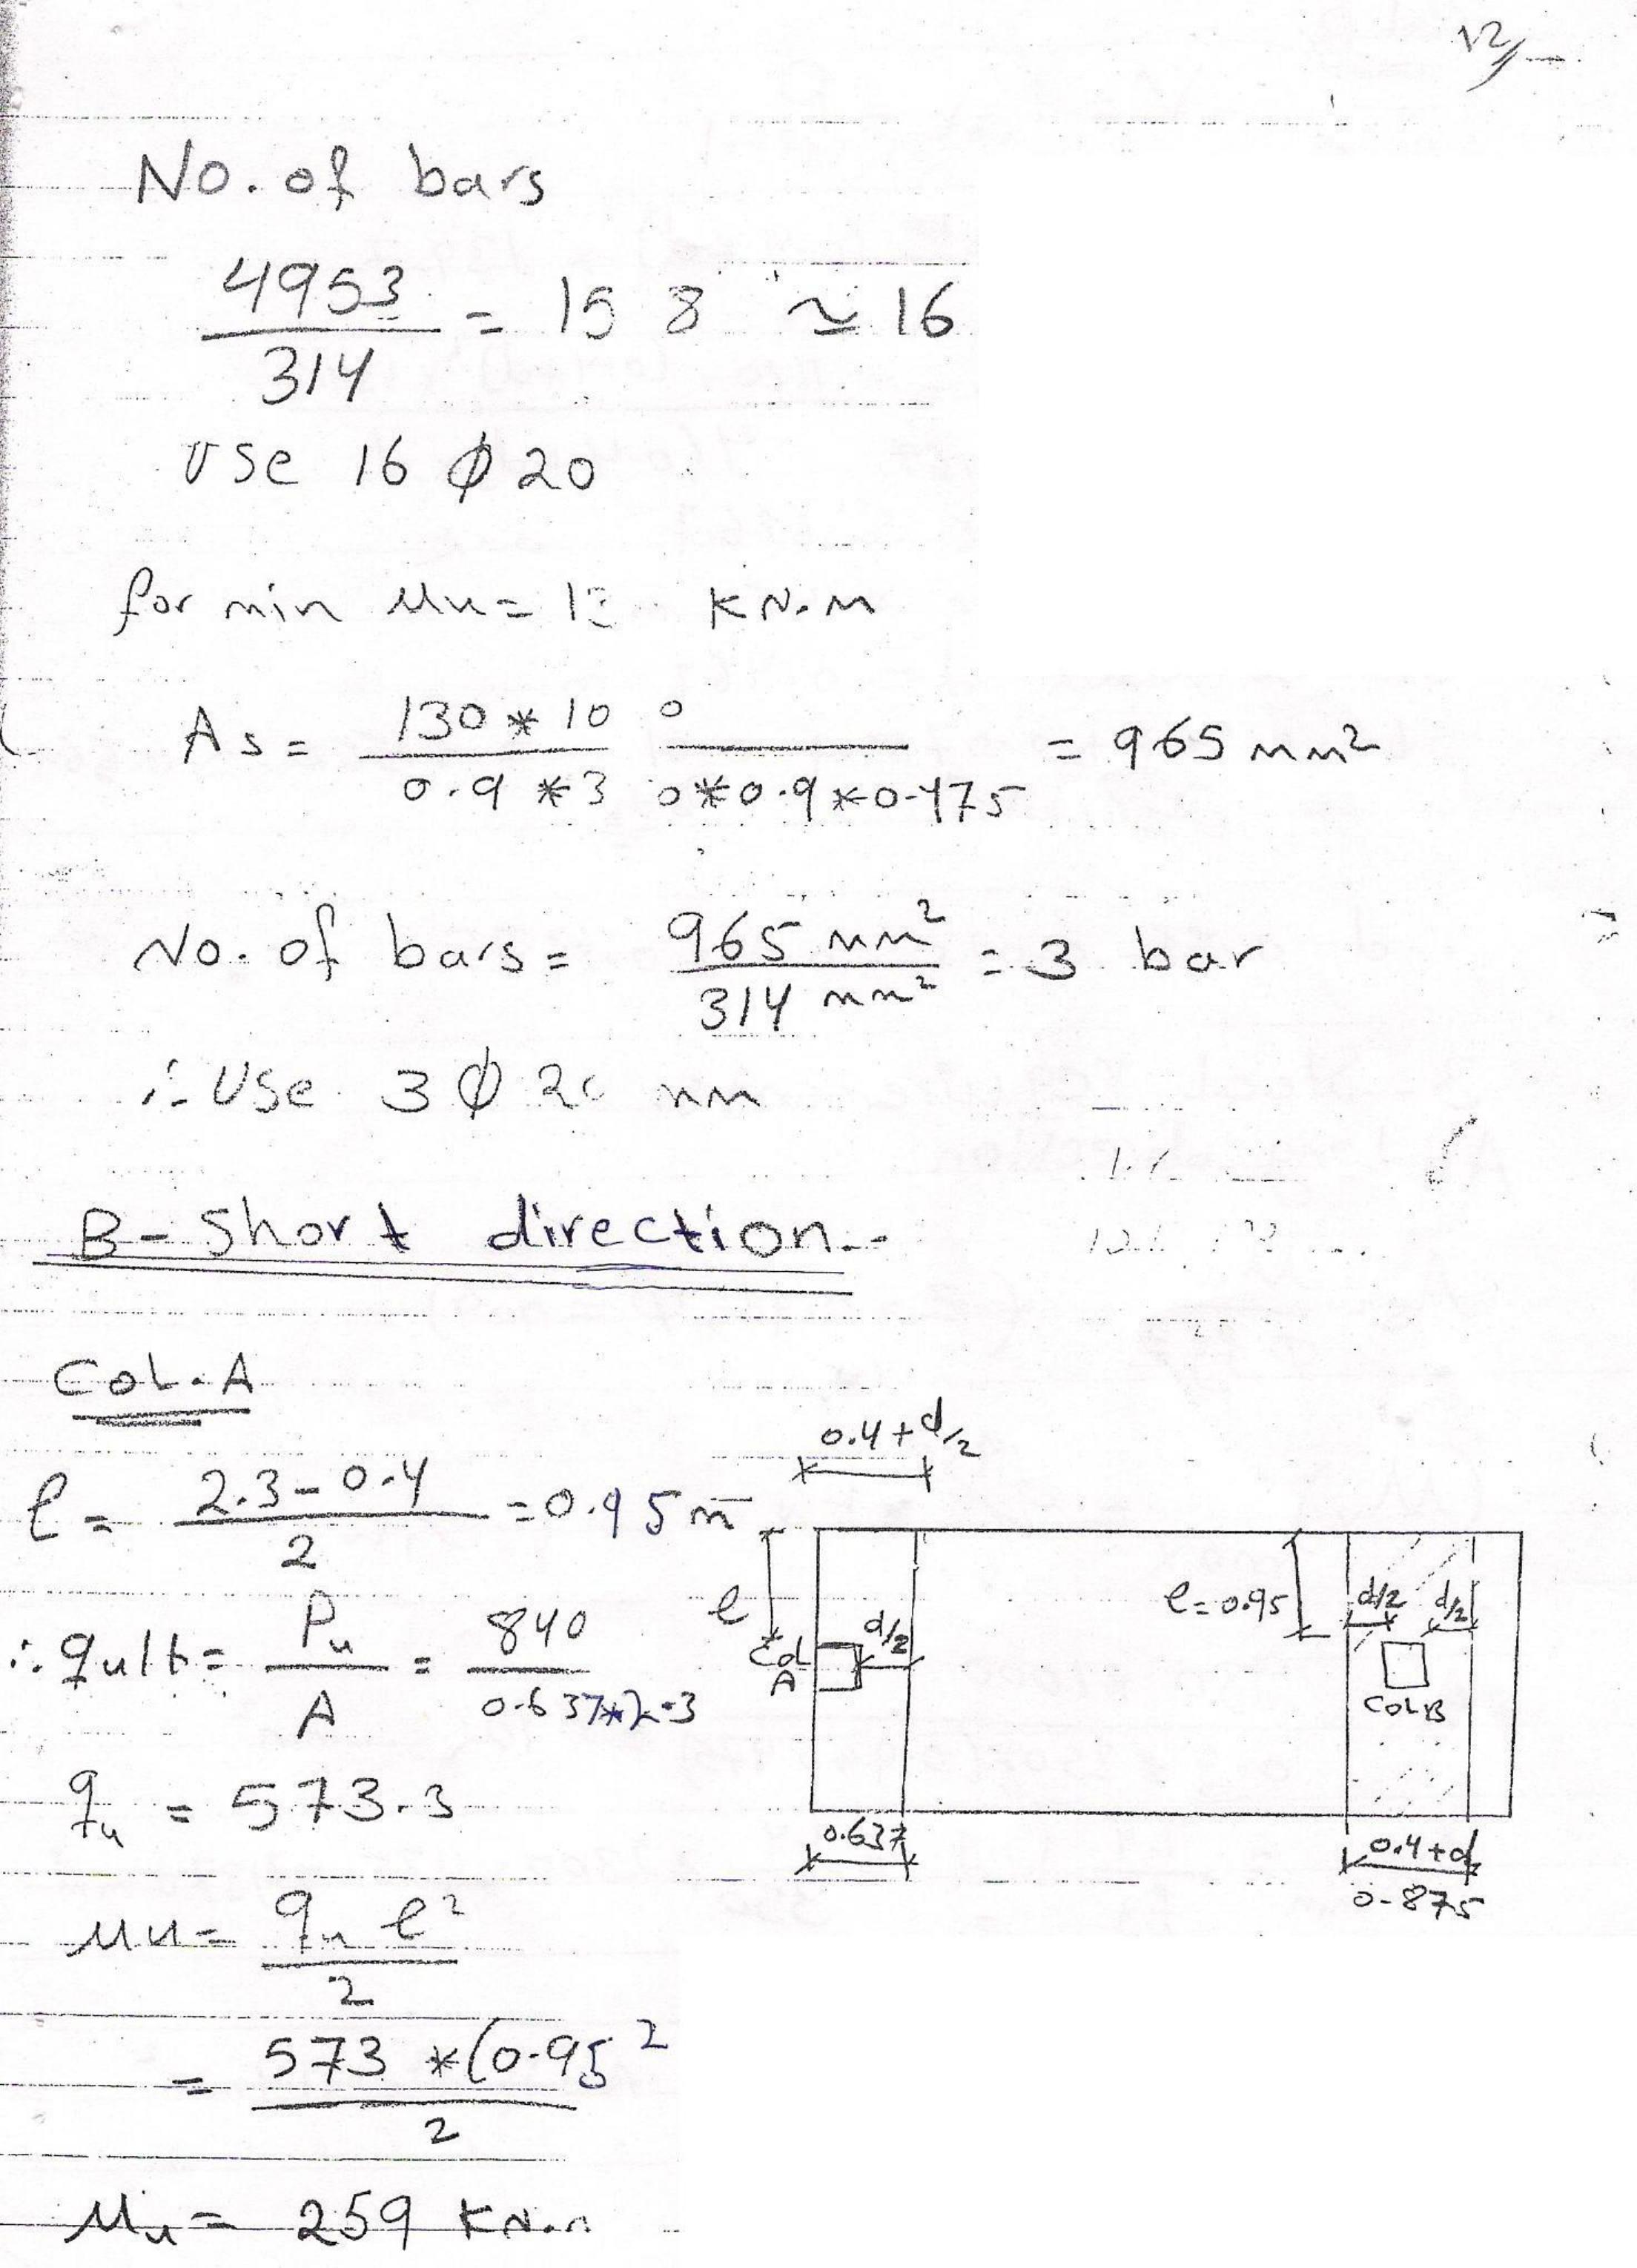 12/
No. of bars
4953 / 314 = 15 8 ≃ 16
Use 16 ϕ 20
for min Mu = 13 KN.m
As = 130 * 10 0 / 0.9 * 3 0 * 0.9 * 0.475 = 965 mm²
No. of bars = 965 mm² / 314 mm² = 3 bar
∴ Use 3 ϕ 20 mm
B - Short direction.-
Col. A
ℓ = 2.3 - 0.4 / 2 = 0.95 m
∴ qult = Pu / A = 840 / 0.637*2.3
qu = 573.3
Mu = qu ℓ² / 2
= 573 * (0.95 ² / 2
Mu = 259 KN.m
0.4 + d/2
ℓ
Col A
d/2
ℓ = 0.95
d/2 d/2
Col B
0.637
0.4 + d
0.875